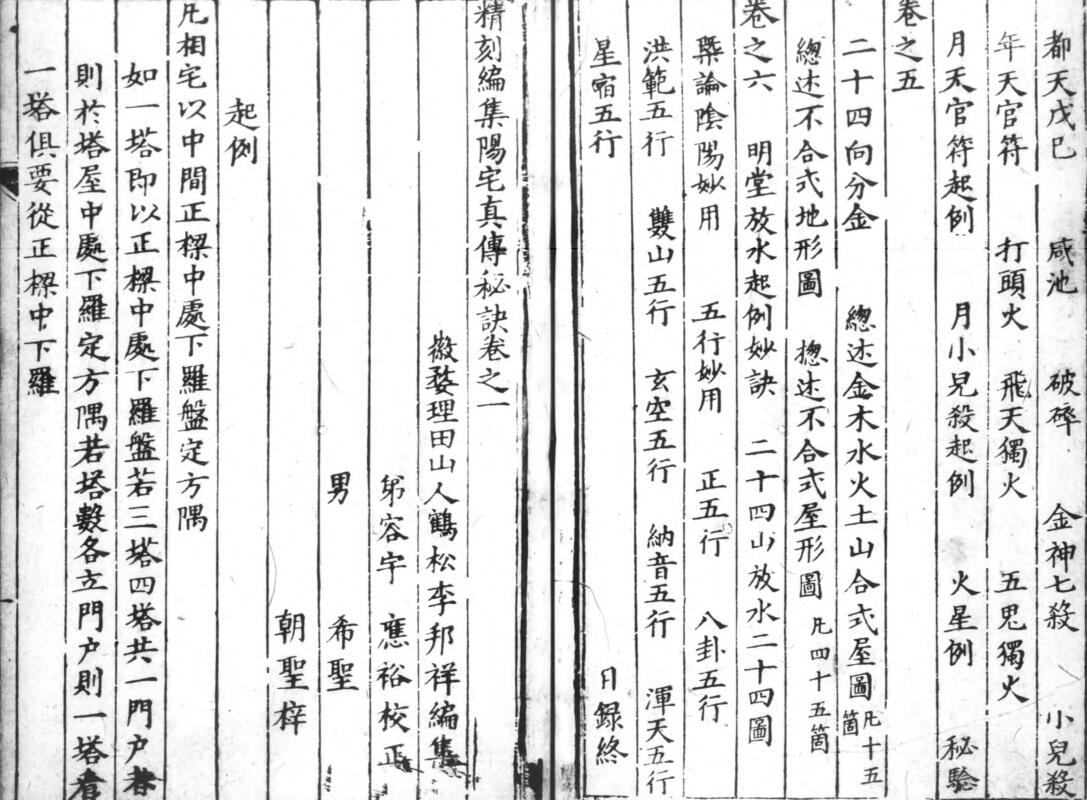 都天戊巳 咸池 破碎 金神七殺 小兒殺
年天官符 打頭火 飛天獨火 五鬼獨火
月天官符起例 月小兒殺起例 火星例 秘驗
卷之五
二十四向分金 總述金木水火土山合式屋圖凡十五箇
總述不合式地形圖 揔述不合式屋形圖凡四十五箇
卷之六 明堂放水起例妙訣 二十四山放水二十四圖
槩論陰陽妙用 五行妙用 正五行 八卦五行
洪範五行 雙山五行 玄空五行 納音五行 渾天五行
星宿五行 目錄終
精刻編集陽宅真傳秘訣卷之一
徽婺理田山人鶴松李邦祥編集
弟容宇 應裕校正
男 希聖
朝聖梓
起例
凡相宅以中間正樑中處下羅盤定方隅
如一塔即以正樑中處下羅盤若三塔四塔共一門户者
則於塔屋中處下羅定方隅若塔數各立門户則一塔看
一塔俱要從正樑中下羅